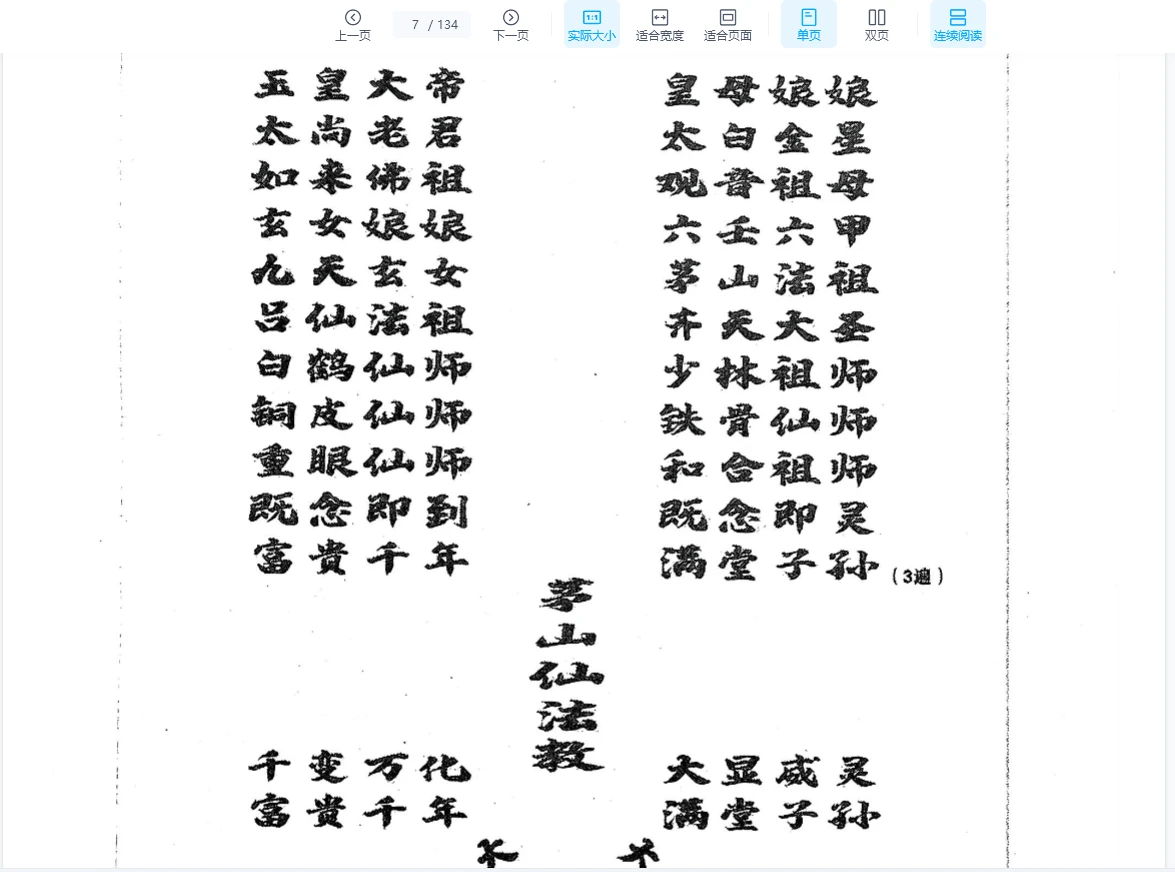 上一页
7 / 134
下一页
实际大小
适合宽度
适合页面
单页
双页
连续阅读
玉皇大帝 皇母娘娘
太尚老君 太白金星
如来佛祖 观音祖母
玄女娘娘 六壬六甲
九天玄女 茅山法祖
吕仙法祖 齐天大圣
白鹤仙师 少林祖师
铜皮仙师 铁骨仙师
重眼仙师 和合祖师
既念即到 既念即灵
富贵千年 满堂子孙（3遍）
茅山仙法教
千变万化 大显威灵
富贵千年 满堂子孙